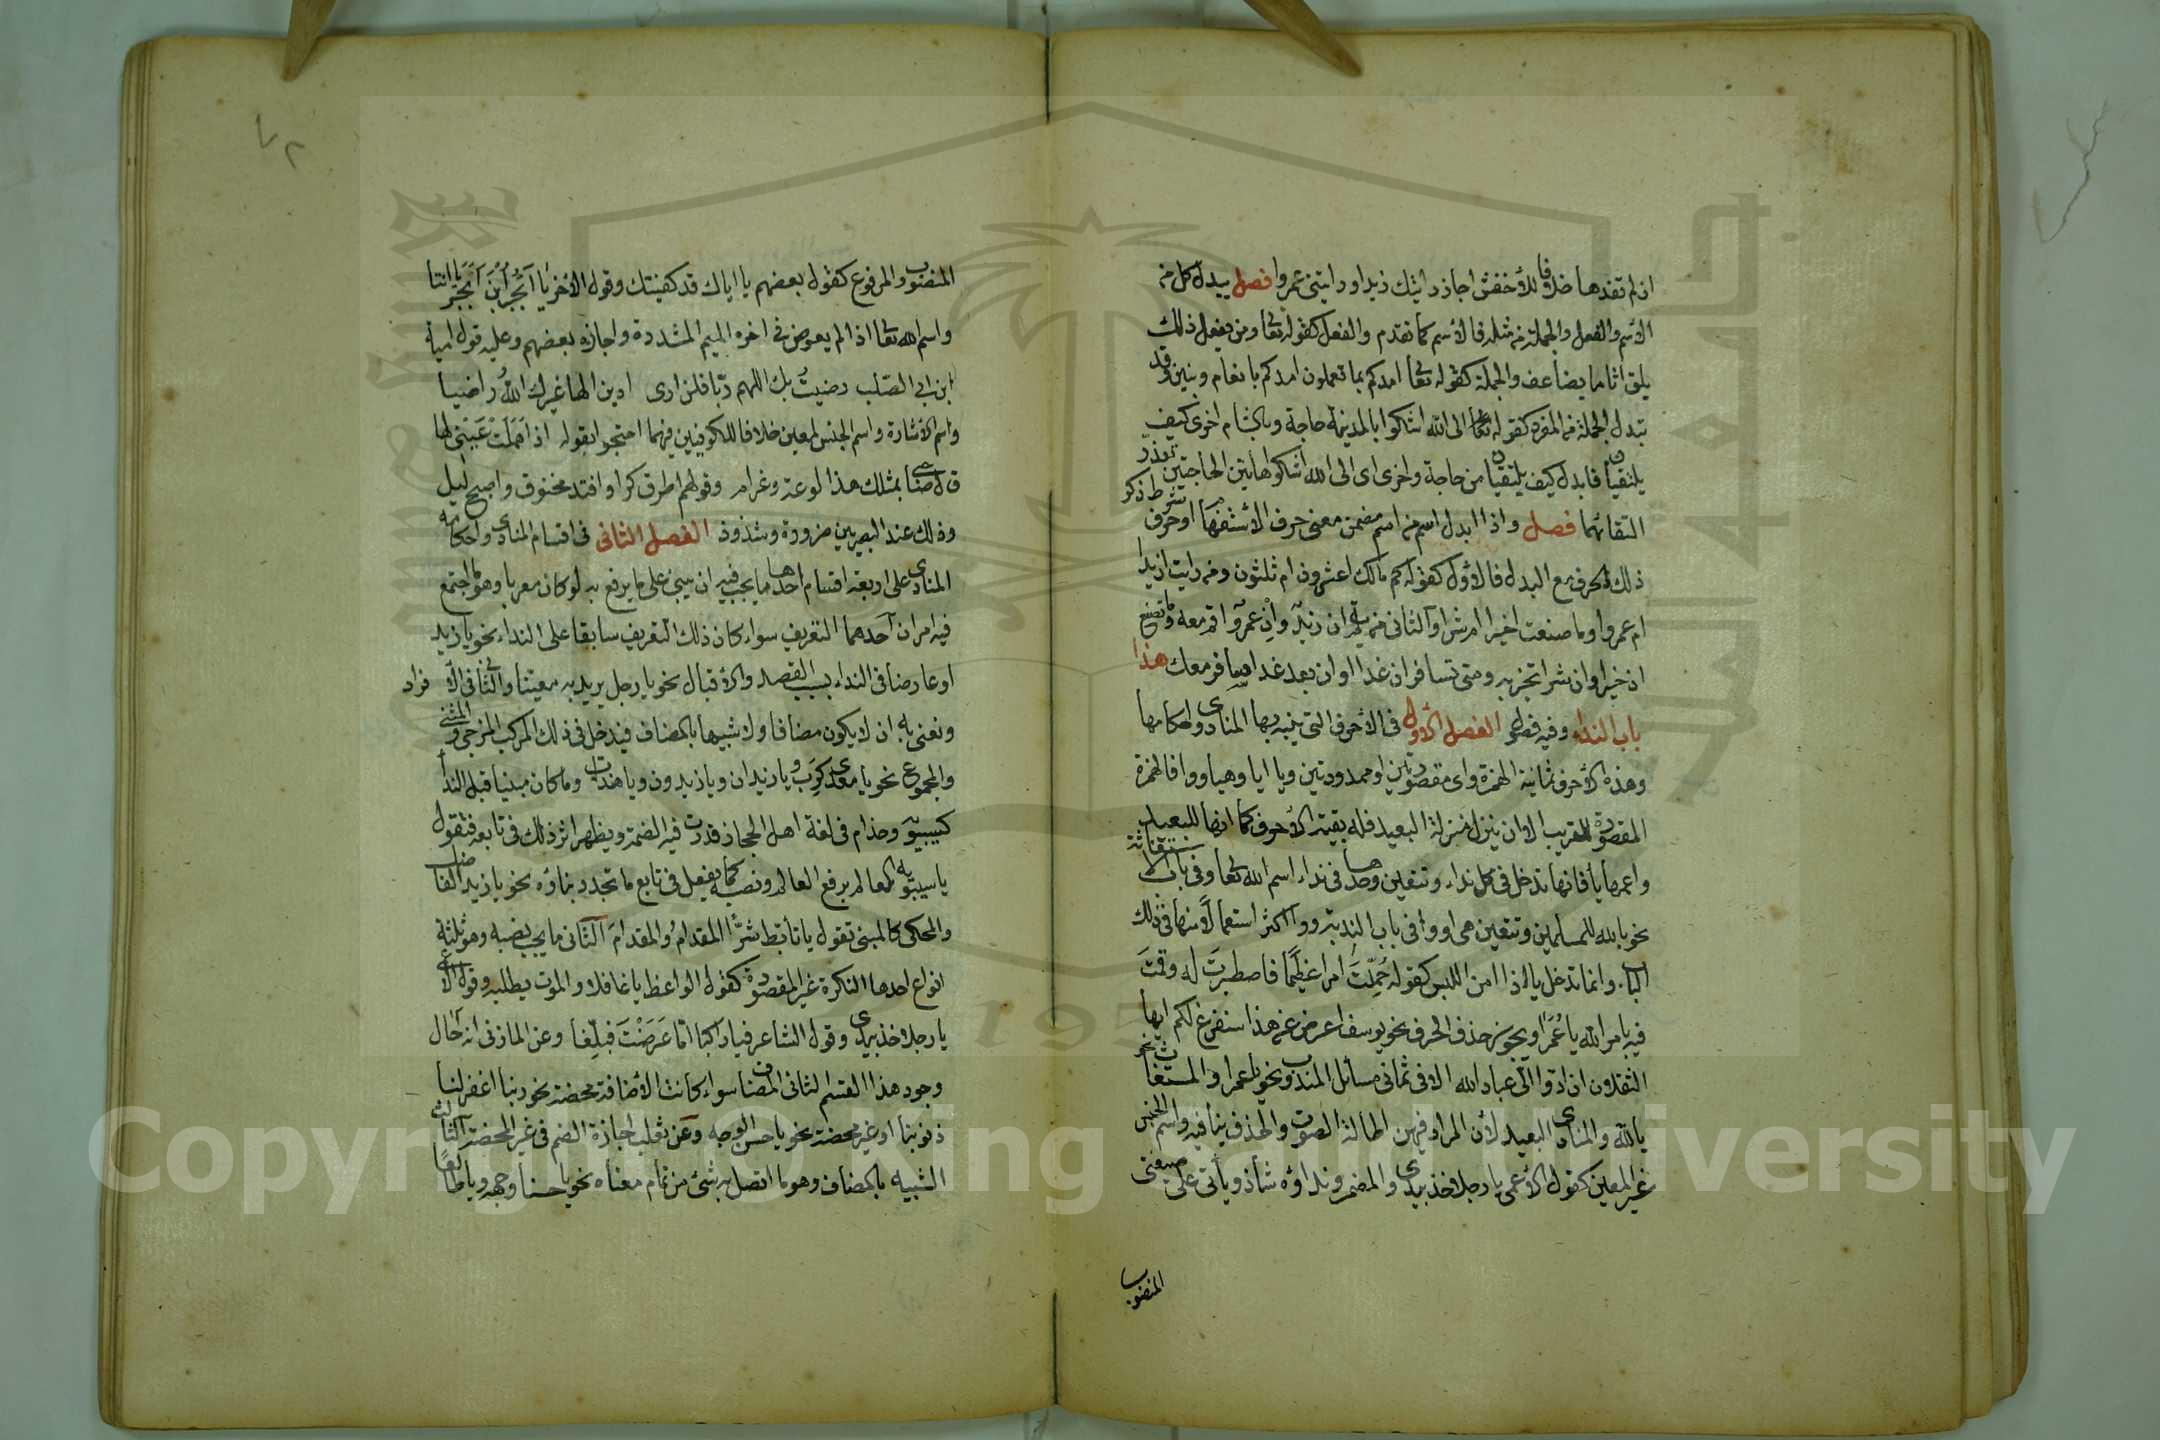 ان لم تفدها خلافا للأخفش اجاز رايتك زيدا ورايتنى عمروا فصل يبدل كل من
الاسم والفعل والجملة من مثله فالاسم كما تقدم والفعل كقوله تعا ومن يفعل ذلك
يلق اثاما يضاعف والجملة كقوله تعا امدكم بما تعملون امدكم بانعام وبنين وقد
تبدل الجملة من المفرد كقوله الى الله اشكوا بالمدينة حاجة وبالشام اخرى كيف
يلتقيان فابدل كيف يلتقيان من حاجة واخرى اى الى الله اشكوا هاتين الحاجتين تعذر
التقائهما فصل واذا ابدل اسم من اسم مضمن معنى حرف الاستفهام او حرف شرط ذكر
ذلك الحرف مع البدل فالأول كقوله كم مالك اعشرون ام ثلثون ومن رايت ازيدا
ام عمروا وما صنعت اخيرا ام شرا والثانى من يقم ان زيد وان عمرو اقم معه وما تصنع
ان خيرا وان شرا تجز به ومتى تسافر ان غدا او ان بعد غد اسافر معك هذا
باب النداء وفيه فصول الفصل الأول فى الأحرف التى ينبه بها المنادى واحكامها
وهذه الأحرف ثمانية الهمزة واى مقصورتين او ممدودتين ويا ايا وهيا ووا فالهمزة
المقصورة للقريب الا ان نزل منزلة البعيد فله بقية الأحرف كما انها للبعيد
واعمها يا فانها تدخل فى كل نداء وتتعين وحدها فى نداء اسم الله تعا وفى باب الاستغاثة
نحو يالله للمسلمين وتتعين هى او وا فى باب الندبة ووا اكثر استعمالا منها فى ذلك
الباب وانما تدخل يا اذا امن اللبس كقوله حُمِّلتَ امرا عظيما فاصطبرت له وقمت
فيه بامر الله يا عُمَرا ويجوز حذف الحرف نحو يوسف اعرض عن هذا سنفرغ لكم ايها
الثقلان ان ادوا الىّ عباد الله الا فى ثمانى مسائل المندوب نحو يا عمرا والمستغاث نحو
يالله والمنادى البعيد لأن المراد فيهن اطالة الصوت والحذف ينافيه واسم الجنس
غير المعين كقول الأعمى يا رجلا خذ بيدى والمضمر ونداؤه شاذ ويأتى على صيغتى
المنصوب
٧٢
المنصوب والمرفوع كقول بعضهم يا اياك قد كفيتك وقول الآخر يا ابجر ابن ابجر يا انتا
واسم الله تعا اذا لم يعوض فى اخره الميم المشددة واجازه بعضهم وعليه قول امية
ابن ابى الصّلب رضيتُ بك اللهم ربّا فلن ارى ادين الها غيرك اللهُ راضيا
واسم الأشارة واسم الجنس لمعين خلافا للكوفيين فيهما احتجوا بقوله اذا هَمَلَتْ عَيْنى لها
قال صاحبى بمثلك هذا لوعة وغرام وقولهم اطرق كرا وافتد مخنوق واصبح ليل
وذلك عند البصريين ضرورة وشذوذ الفصل الثانى فى اقسام المنادى واحكامه
المنادى على اربعة اقسام احدها ما يجب فيه ان يبنى على ما يرفع به لو كان معربا وهو ما اجتمع
فيه امران احدهما التعريف سواء كان ذلك التعريف سابقا على النداء نحو يا زيد
او عارضا فى النداء بسبب القصد والأقبال نحو يا رجل يريد به معينا والثانى الأفراد
ونعنى به ان لا يكون مضافا ولا شبيها بالمضاف فيدخل فى ذلك المركب المزجى والمثنى
والمجموع نحو يا معدى كرب ويا زيدان ويا زيدون ويا هندات وما كان مبنيا قبل النداء
كسيبويه وحذام فى لغة اهل الحجاز قدرت فيه الضمة ويظهر اثر ذلك فى تابعه فتقول
يا سيبويه العالم برفع العالم ونصبه كما يفعل فى تابع ما تجدد بناؤه نحو يا زيد الفاضل
والمحكى كالمبنى تقول يا تأبّط شرّا المقدامُ والمقدامَ الثانى ما يجب نصبه وهو ثلثة
انواع احدها النكرة غير المقصودة كقول الواعظ يا غافلا والموت يطلبه وقول الأعمى
يا رجلا خذ بيدى وقول الشاعر فيا راكبا امّا عَرَضْتَ فبلّغا وعن المازنى انه احال
وجود هذا القسم الثانى المضاف سواء كانت الأضافة محضة نحو ربنا اغفر لنا
ذنوبنا او غير محضة نحو يا حسن الوجه وعن ثعلب اجازة الضم فى غير المحضة الثالث
الشبيه بالمضاف وهو ما اتصل به شئ من تمام معناه نحو يا حسنا وجهه ويا طالعًا
Copyright © King Saud University